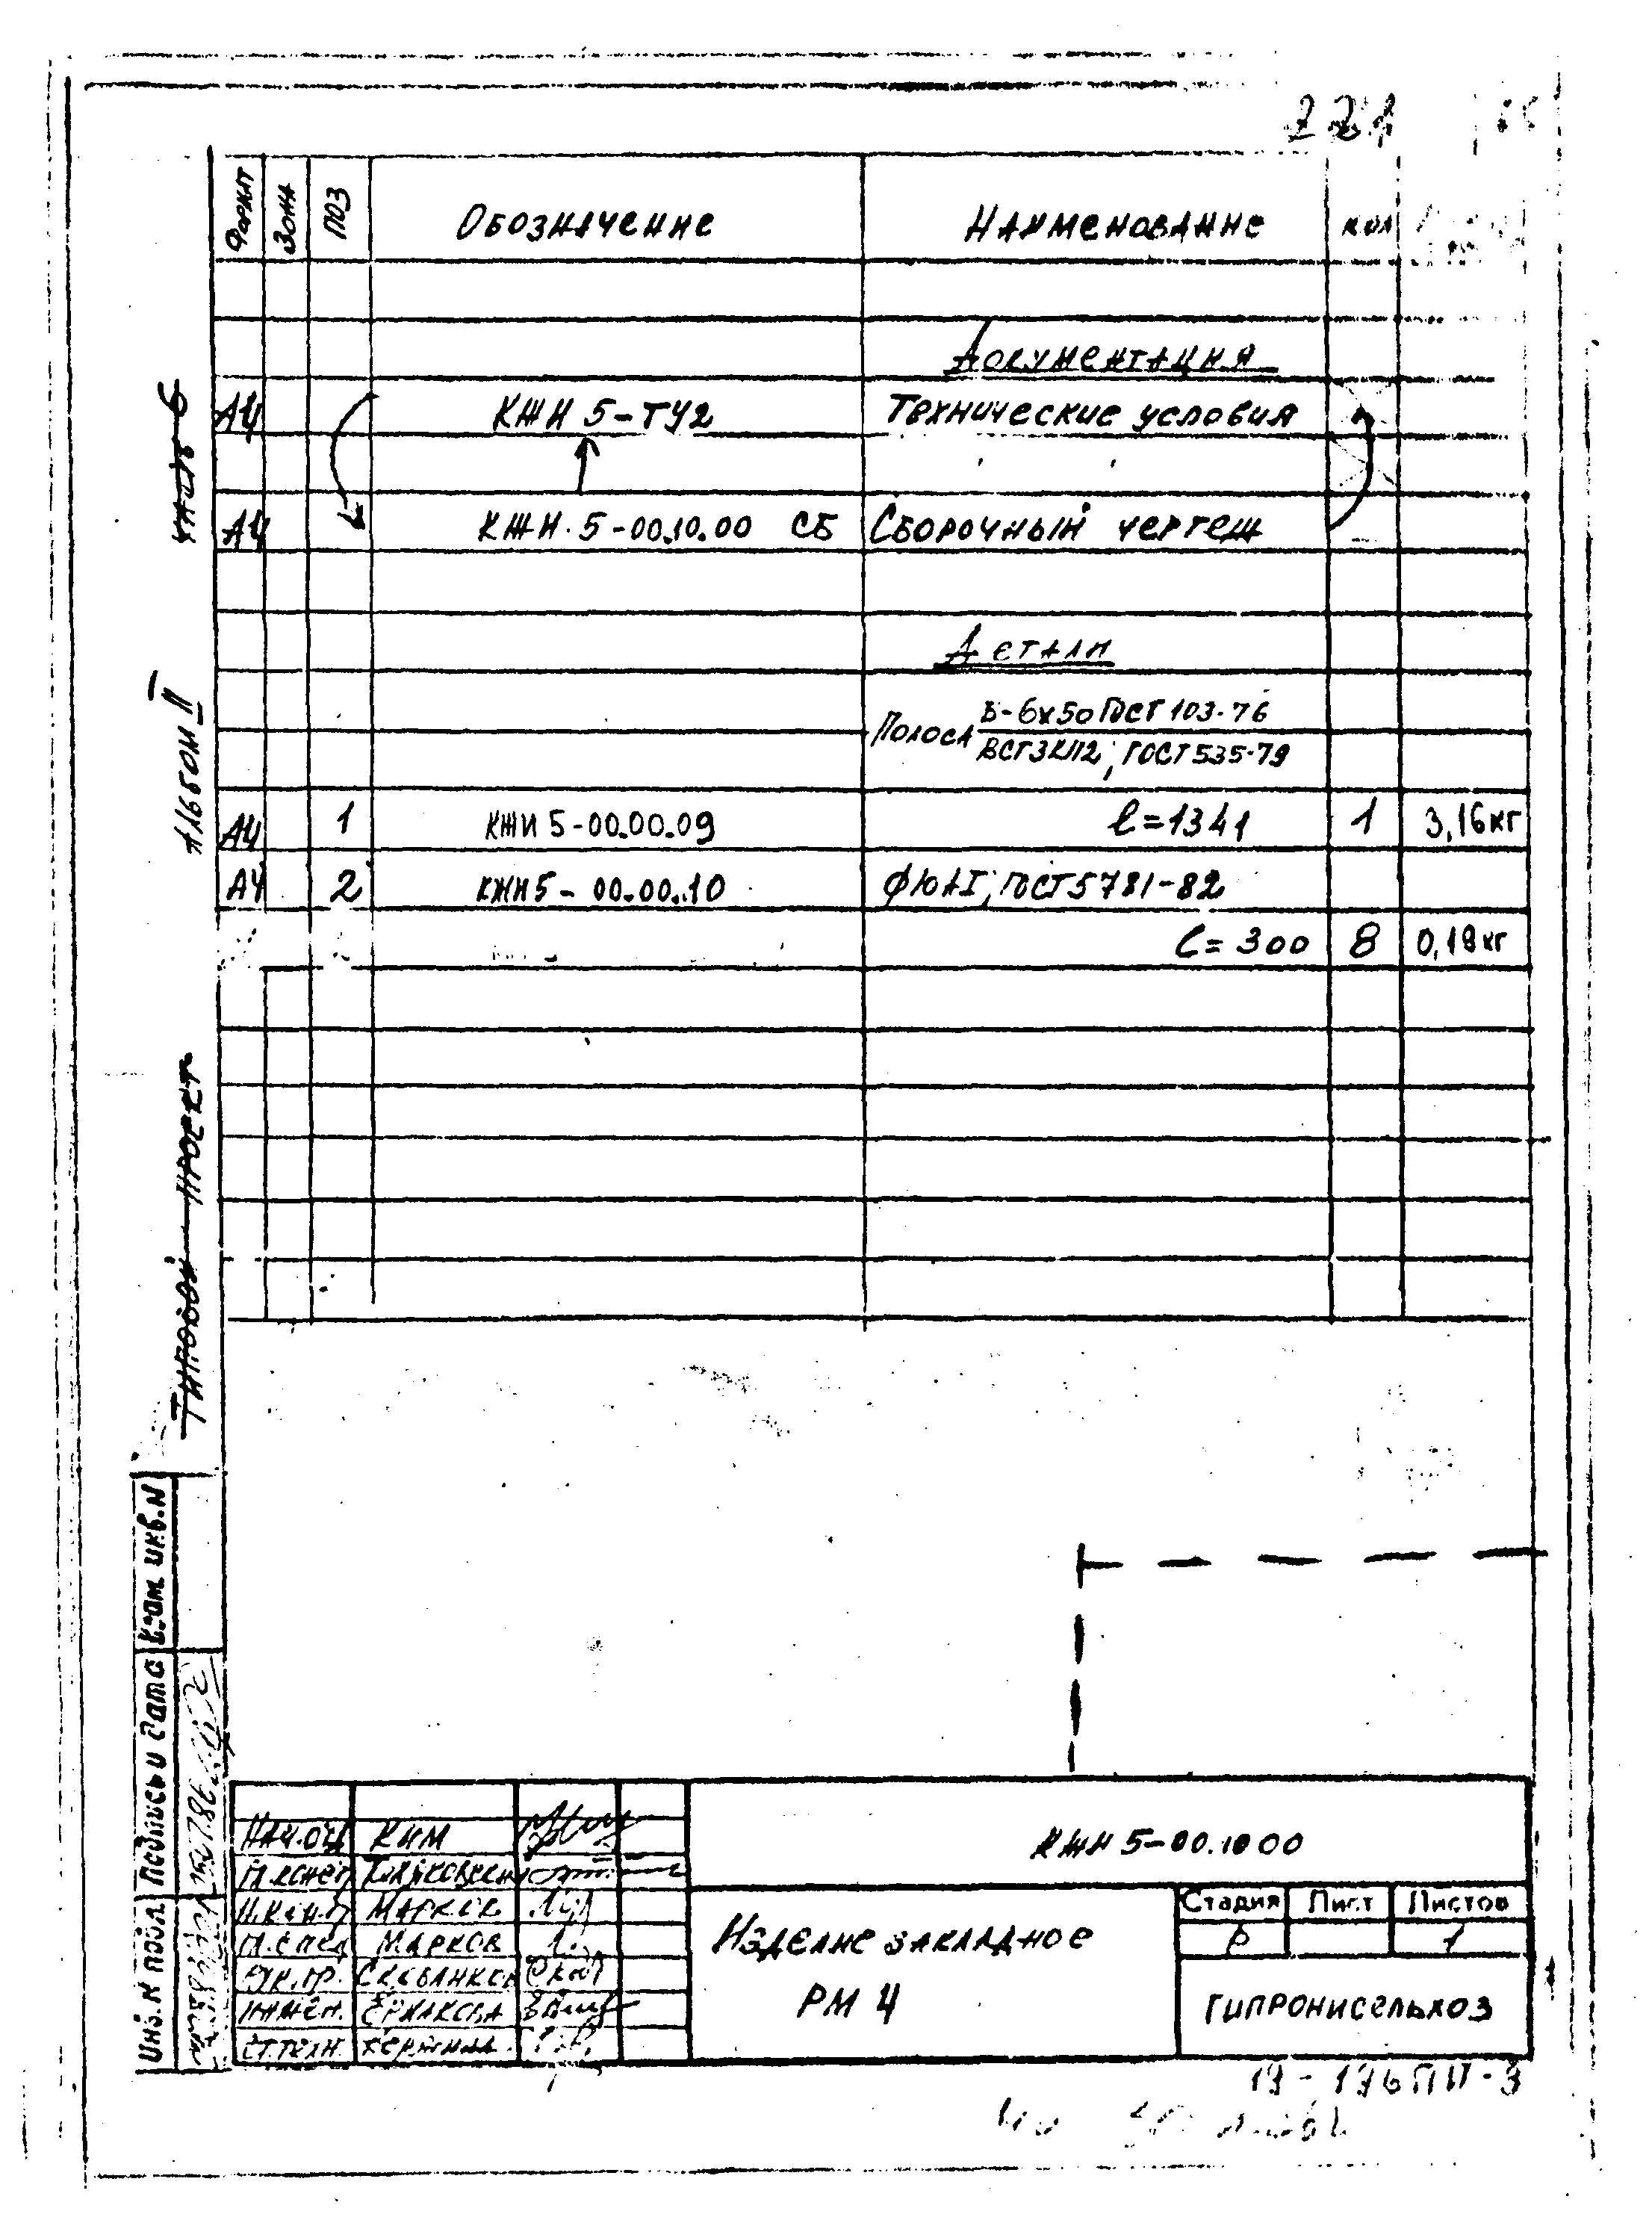 221
Формат Зона ПОЗ Обозначение Наименование Кол
Документация
А4 КЖИ 5-ТУ2 Технические условия
А4 КЖИ.5-00.10.00 СБ Сборочный чертеж
Детали
Полоса Б-6х50 ГОСТ 103-76
ВСТ3КП2; ГОСТ 535-79
А4 1 КЖИ 5-00.00.09 ℓ=1341 1 3,16кг
А4 2 КЖИ5-00.00.10 Ф10АI; ГОСТ 5781-82
ℓ=300 8 0,19кг
Часть 6
Альбом II
Типовой проект
Взам. инв. N
Подпись и дата
Инв. N подл
Нач.отд Ким
Гл.конст
Н.контр Марков
Гл.спец Марков
Рук.гр.
Инжен. Ермакова
Ст.техн.
КЖИ 5-00.10 00
Изделие закладное
РМ 4
Стадия Лист Листов
Р 1
ГИПРОНИСЕЛЬХОЗ